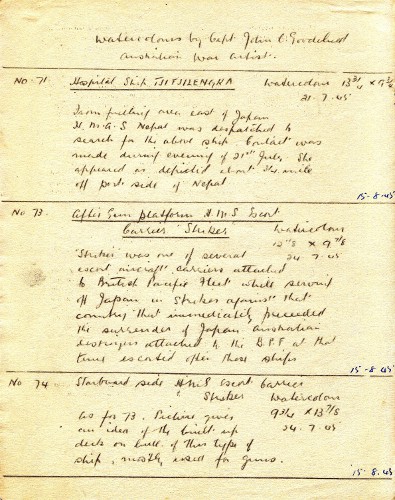 Watercolours by Capt. John C. Goodchild
Australian War Artist.
No. 71. Hospital Ship TJITJILENGKA Watercolour 13 3/4 x 9 3/4
21-7-45
From fuelling area east of Japan
H.M.A.S Nepal was despatched to
search for the above ship. Contact was
made during evening of 21st July. She
appeared as depicted about mile
off port side of Nepal
15-8-45
No 73. After Gun Platform H.M.S Escort
Carrier "Striker" Watercolour
x 9 7/8
24-7-45
"Striker" was one of several
escort aircraft carriers attached
to British Pacific Fleet while serving
off Japan in Strikes against that
country that immediately preceded
the surrender of Japan. Australian
destroyers attached to the B.P.F at that
time escorted often these ships
15-8-45
No 74 Starboard side H.M.S Escort Carrier
Striker Watercolour
9 3/4 x 13 7/8
24-7-45
As for 73. Picture gives
an idea of the built up
deck on hull of this type of
ship, mostly used for guns.
15-8-45